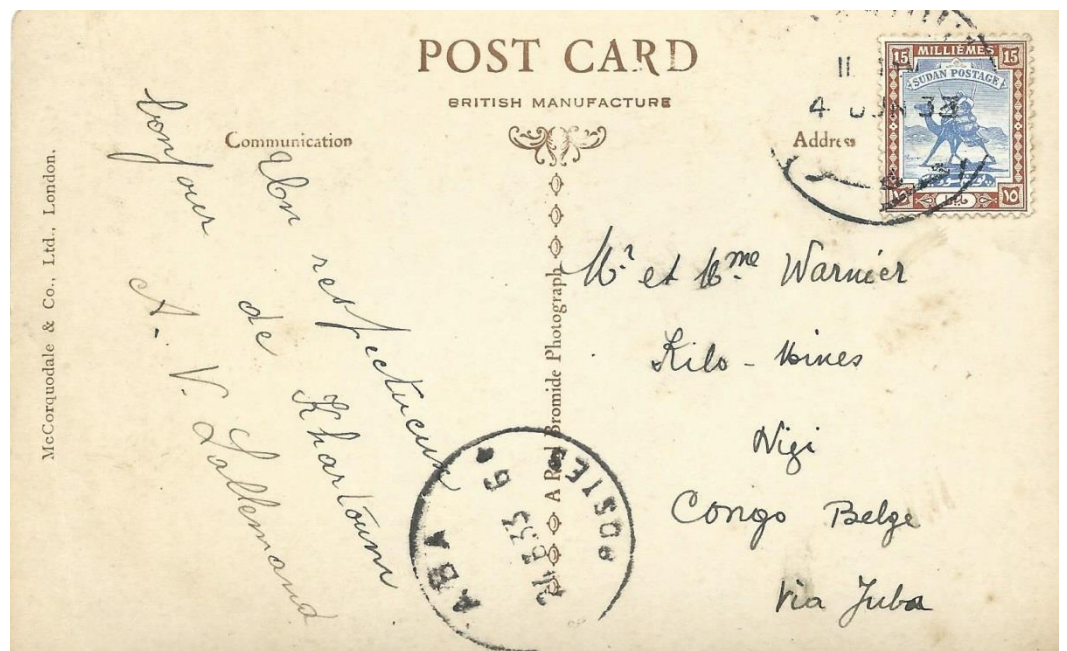 POST CARD
BRITISH MANUFACTURE
Communication
Address
McCorquodale & Co., Ltd., London.
A Real Bromide Photograph
Un respectueux
bonjour de Khartoum
A. V. Lallemand
11
4 JUN 33
15 MILLIÈMES 15
SUDAN POSTAGE
١٥ ١٥
Mr. et Mme Warnier
Kilo - Mines
Nizi
Congo Belge
Via Juba
ABA
POSTES
33